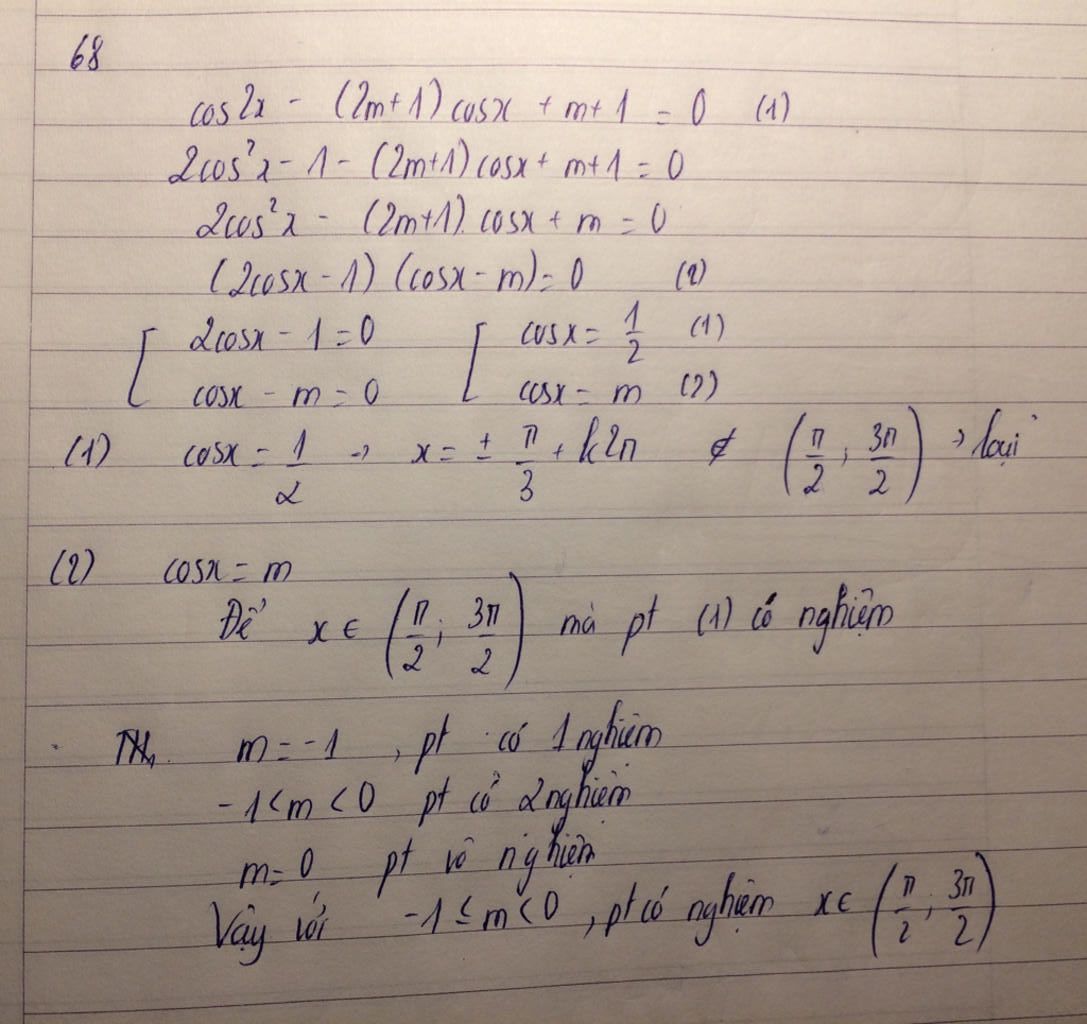 68
cos2x - (2m+1)cosx + m+1 = 0 (1)
2cos²x - 1 - (2m+1)cosx + m+1 = 0
2cos²x - (2m+1).cosx + m = 0
(2cosx - 1) (cosx - m) = 0 (2)
[ 2cosx - 1 = 0 [ cosx = 1/2 (1)
cosx - m = 0 cosx = m (2)
(1) cosx = 1/2 → x = ± π/3 + k2π ∉ (π/2 ; 3π/2) → loại
(2) cosx = m
Để x ∈ (π/2 ; 3π/2) mà pt (1) có nghiệm
TH. m = -1 , pt có 1 nghiệm
-1 < m < 0 pt có 2 nghiệm
m = 0 pt vô nghiệm
Vậy với -1 ≤ m < 0 , pt có nghiệm x ∈ (π/2 ; 3π/2)